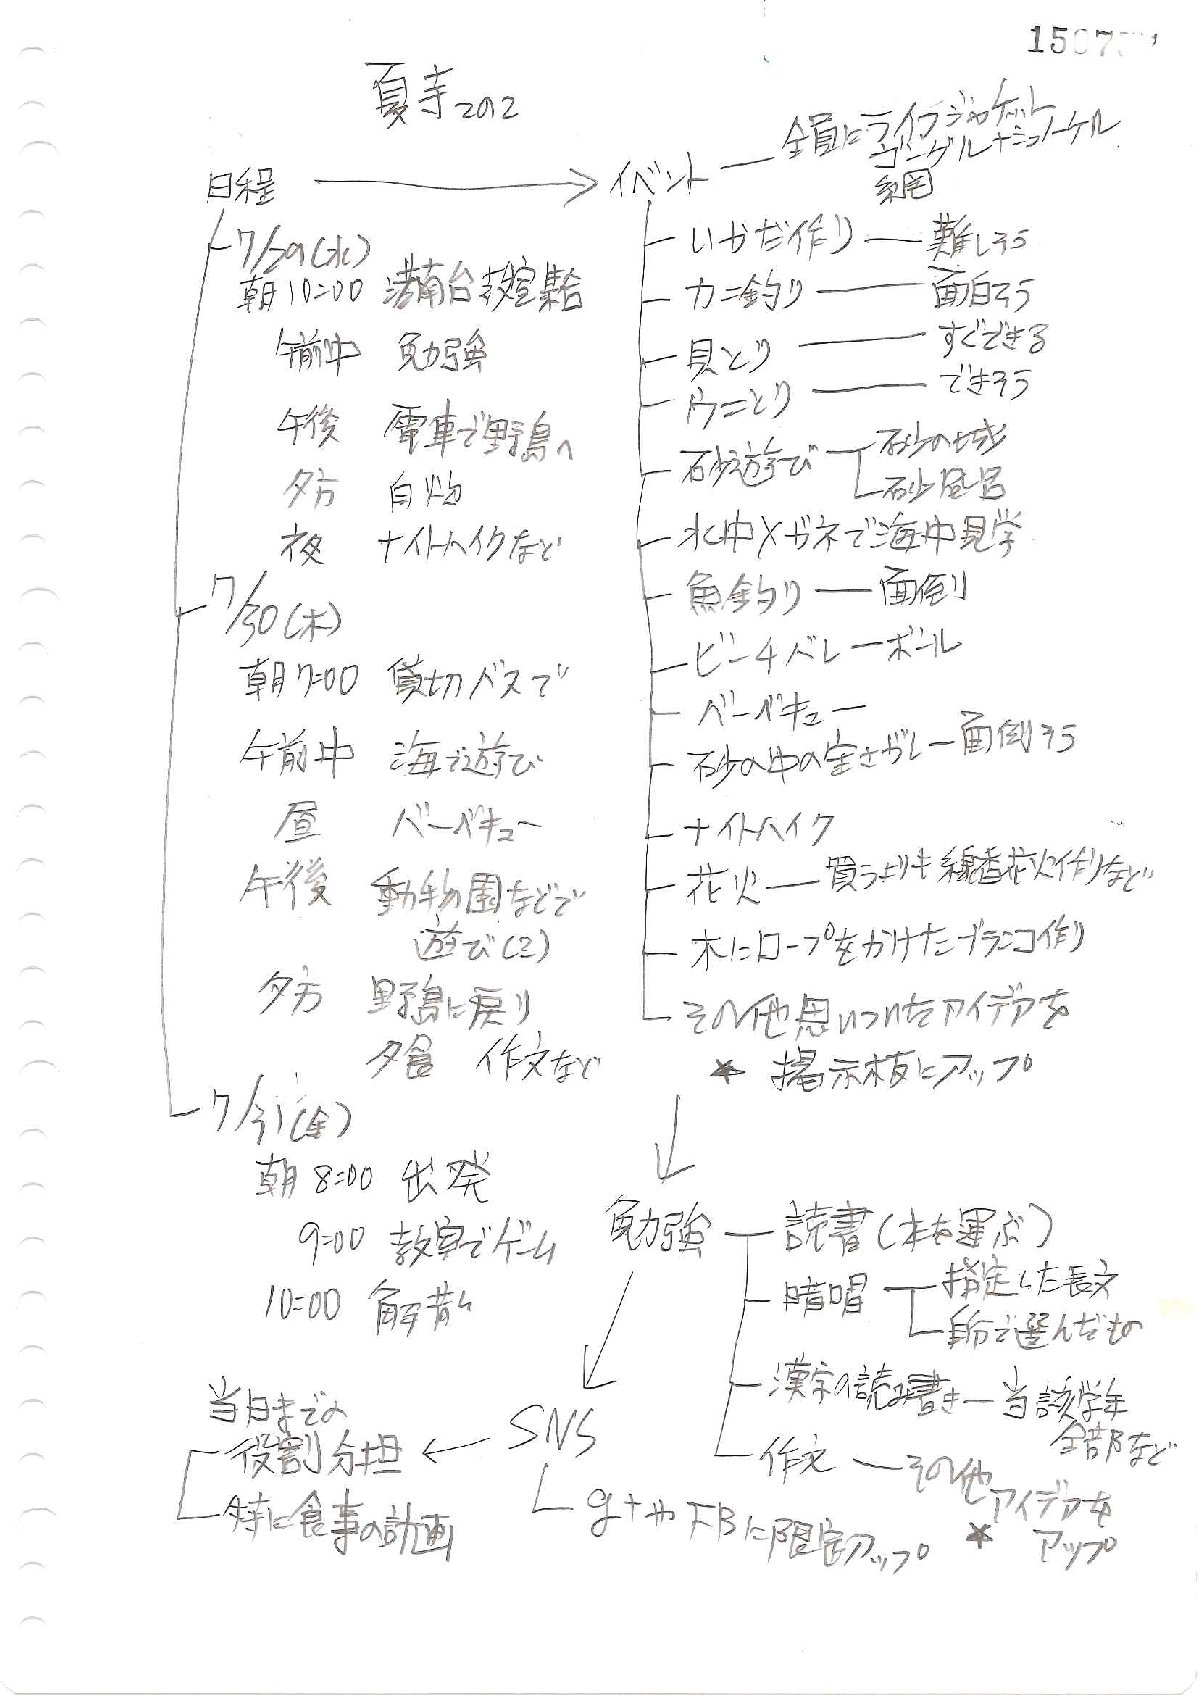 夏寺その2
日程
7/29(水)
朝10:00 港南台教室集合
午前中 勉強
午後 電車で野島へ
夕方 自炊
夜 ナイトハイクなど
7/30(木)
朝7:00 貸切バスで
午前中 海で遊び
昼 バーベキュー
午後 動物園などで
遊び(2)
夕方 野島に戻り
夕食 作文など
7/31(金)
朝8:00 出発
9:00 教室でゲーム
10:00 解散
イベント
全員にライフジャケット
ゴーグル+シュノーケル
網
いかだ作り 難しそう
カニ釣り 面白そう
貝とり すぐできる
ウニとり できそう
砂遊び 砂の城
砂風呂
水中メガネで海中見学
魚釣り 面倒
ビーチバレーボール
バーベキュー
砂の中の宝さがし 面倒そう
ナイトハイク
花火 買うよりも線香花火作りなど
木にロープをかけたブランコ作り
その他思いついたアイデアを
★ 掲示板にアップ
勉強 読書(本を運ぶ)
暗唱 指定した長文
自分で選んだもの
漢字の読み書き 当該学年
全部など
作文 その他
アイデアを
★ アップ
SNS
g+やFBに限定アップ
当日までの
役割分担
特に食事の計画